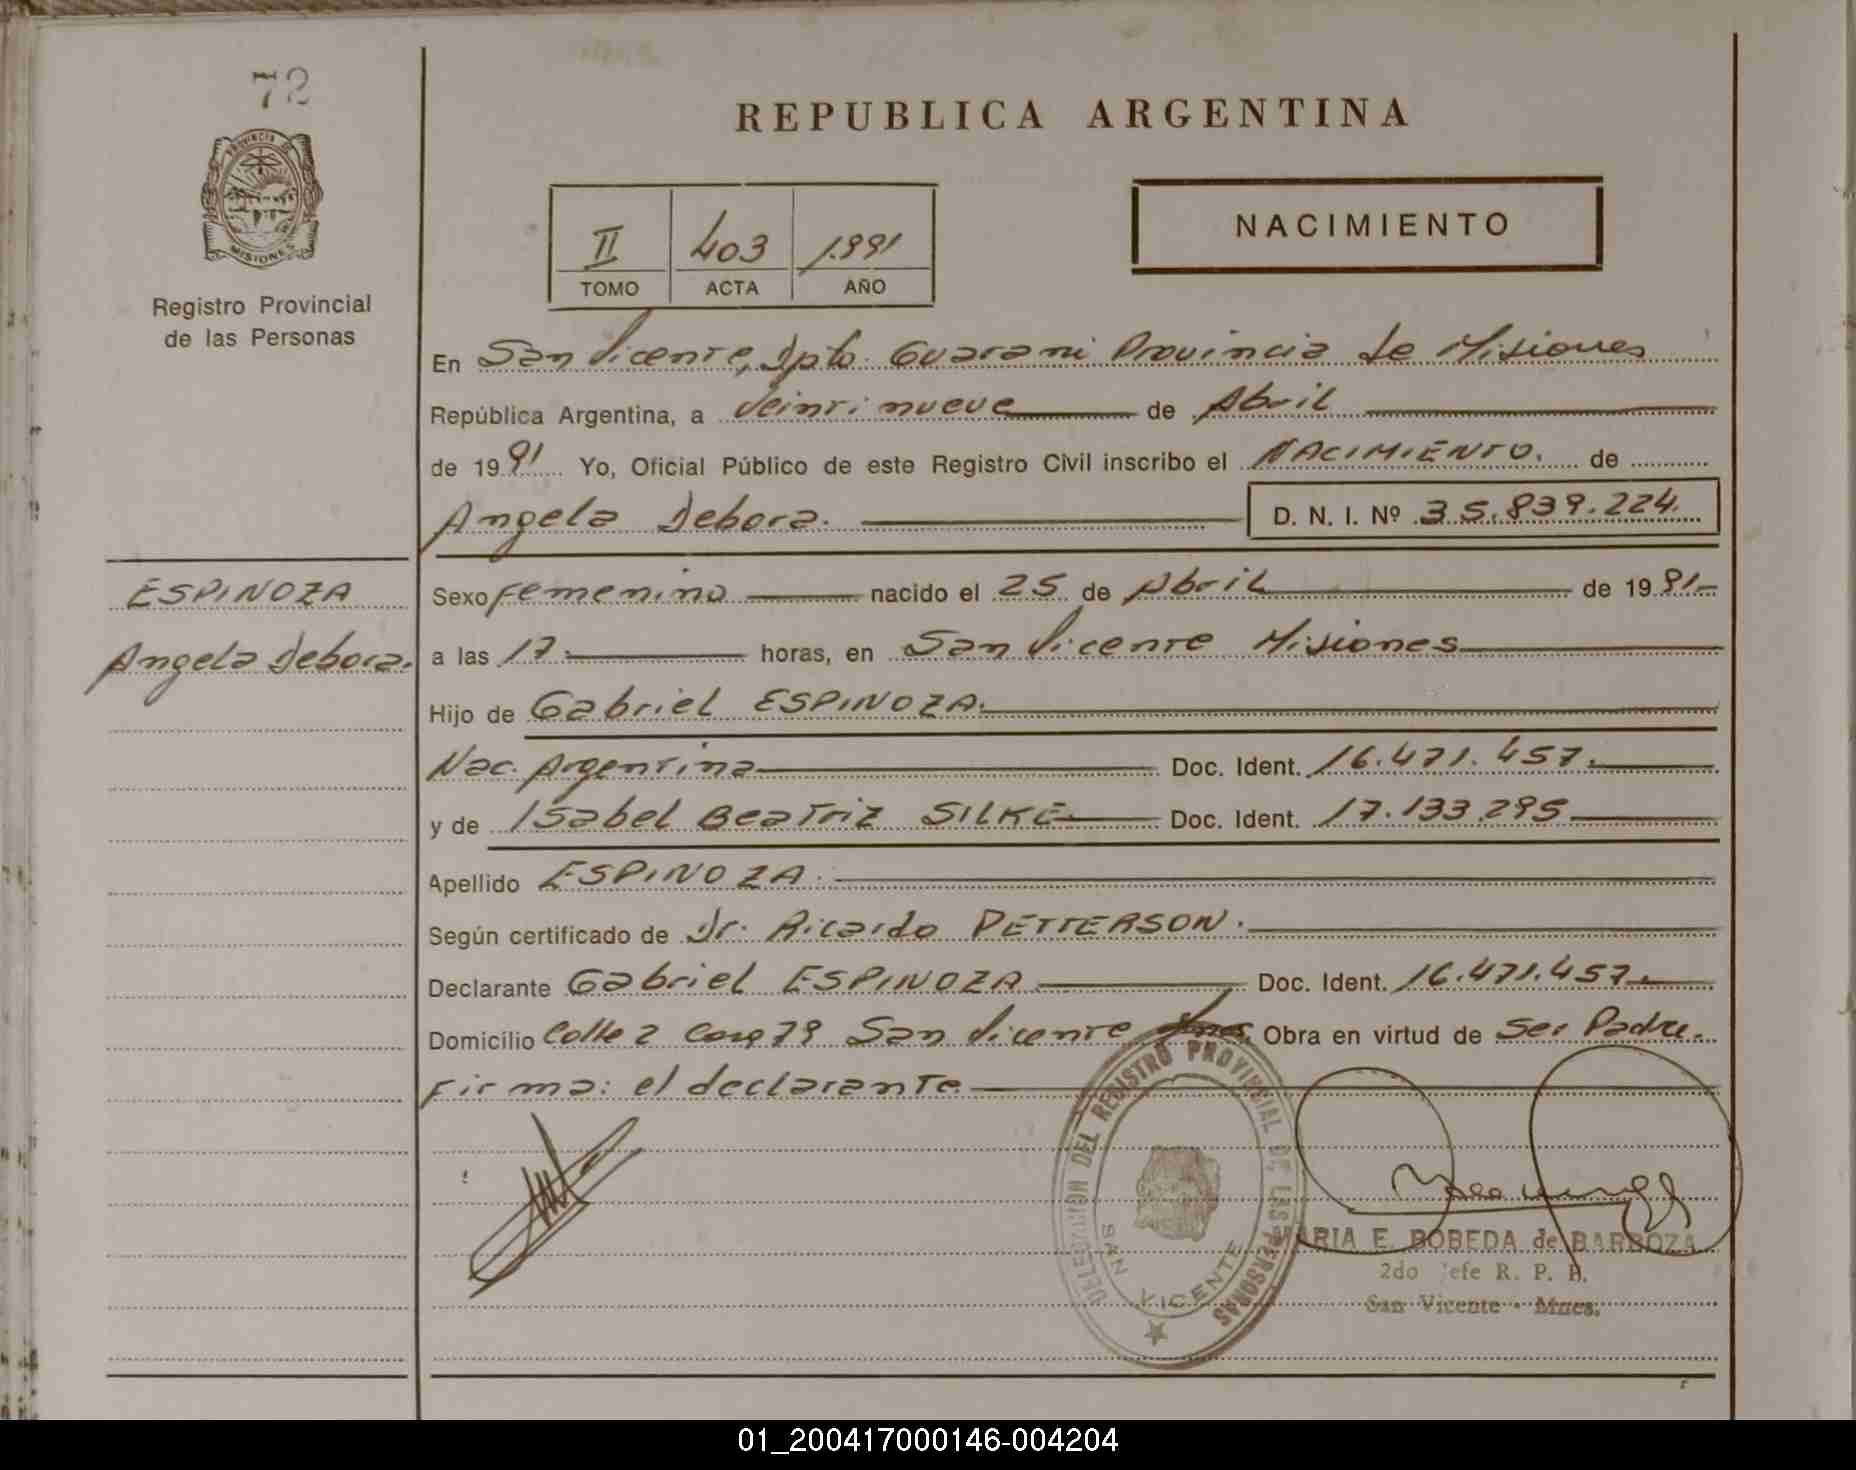 72
REPUBLICA ARGENTINA
PROVINCIA DE
MISIONES
Registro Provincial
de las Personas
II 403 1.991
TOMO ACTA AÑO
NACIMIENTO
En San Vicente, Dpto. Guarani Provincia de Misiones
República Argentina, a Veintinueve de Abril
de 1991 Yo, Oficial Público de este Registro Civil inscribo el NACIMIENTO. de
Angela Debora. D. N. I. Nº 35.839.224.
ESPINOZA
Angela Debora.
Sexo femenino nacido el 25 de Abril de 1991
a las 17. horas, en San Vicente Misiones
Hijo de Gabriel ESPINOZA.
Nac. Argentina Doc. Ident. 16.471.457.
y de Isabel Beatriz SILKE Doc. Ident. 17.133.295
Apellido ESPINOZA.
Según certificado de Dr. Ricardo PETTERSON.
Declarante Gabriel ESPINOZA Doc. Ident. 16.471.457.
Domicílio Calle 2 Casa 79 San Vicente Obra en virtud de Ser Padre.
Firma: el declarante.
DELEGACION DEL REGISTRO PROVINCIAL DE LAS PERSONAS
SAN VICENTE
ARIA E. BOBEDA de BARBOZA
2do Jefe R. P. P.
San Vicente - Mnes.
01_200417000146-004204